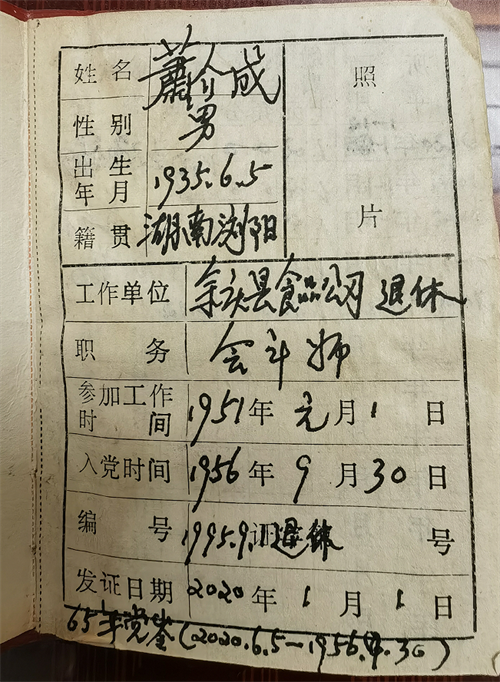 姓名 蕭介成
照
性别 男
出生年月 1935.6.5
籍贯 湖南浏阳
片
工作单位 余庆县食品公司 退休
职务 会计师
参加工作时间 1951年元月1日
入党时间 1956年9月30日
编号 1995.9.1 退休 号
发证日期 2020年1月1日
65年党鉴(2020.6.5—1956.9.30)